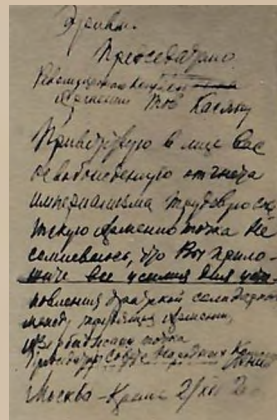 Эривань.
Председателю
Революционного Комитета
Армении Тов Касьяну
Приветствую в лице Вас
освобожденную от гнета
империализма трудовую сов
етскую Армению точка Не
сомневаюсь, что Вы прило-
жите все усилия для уст
новления братской солидарн
между трудящимися Армении,
точка
Председатель Совета Народных Ленин
Москва - Кремль 2/XII